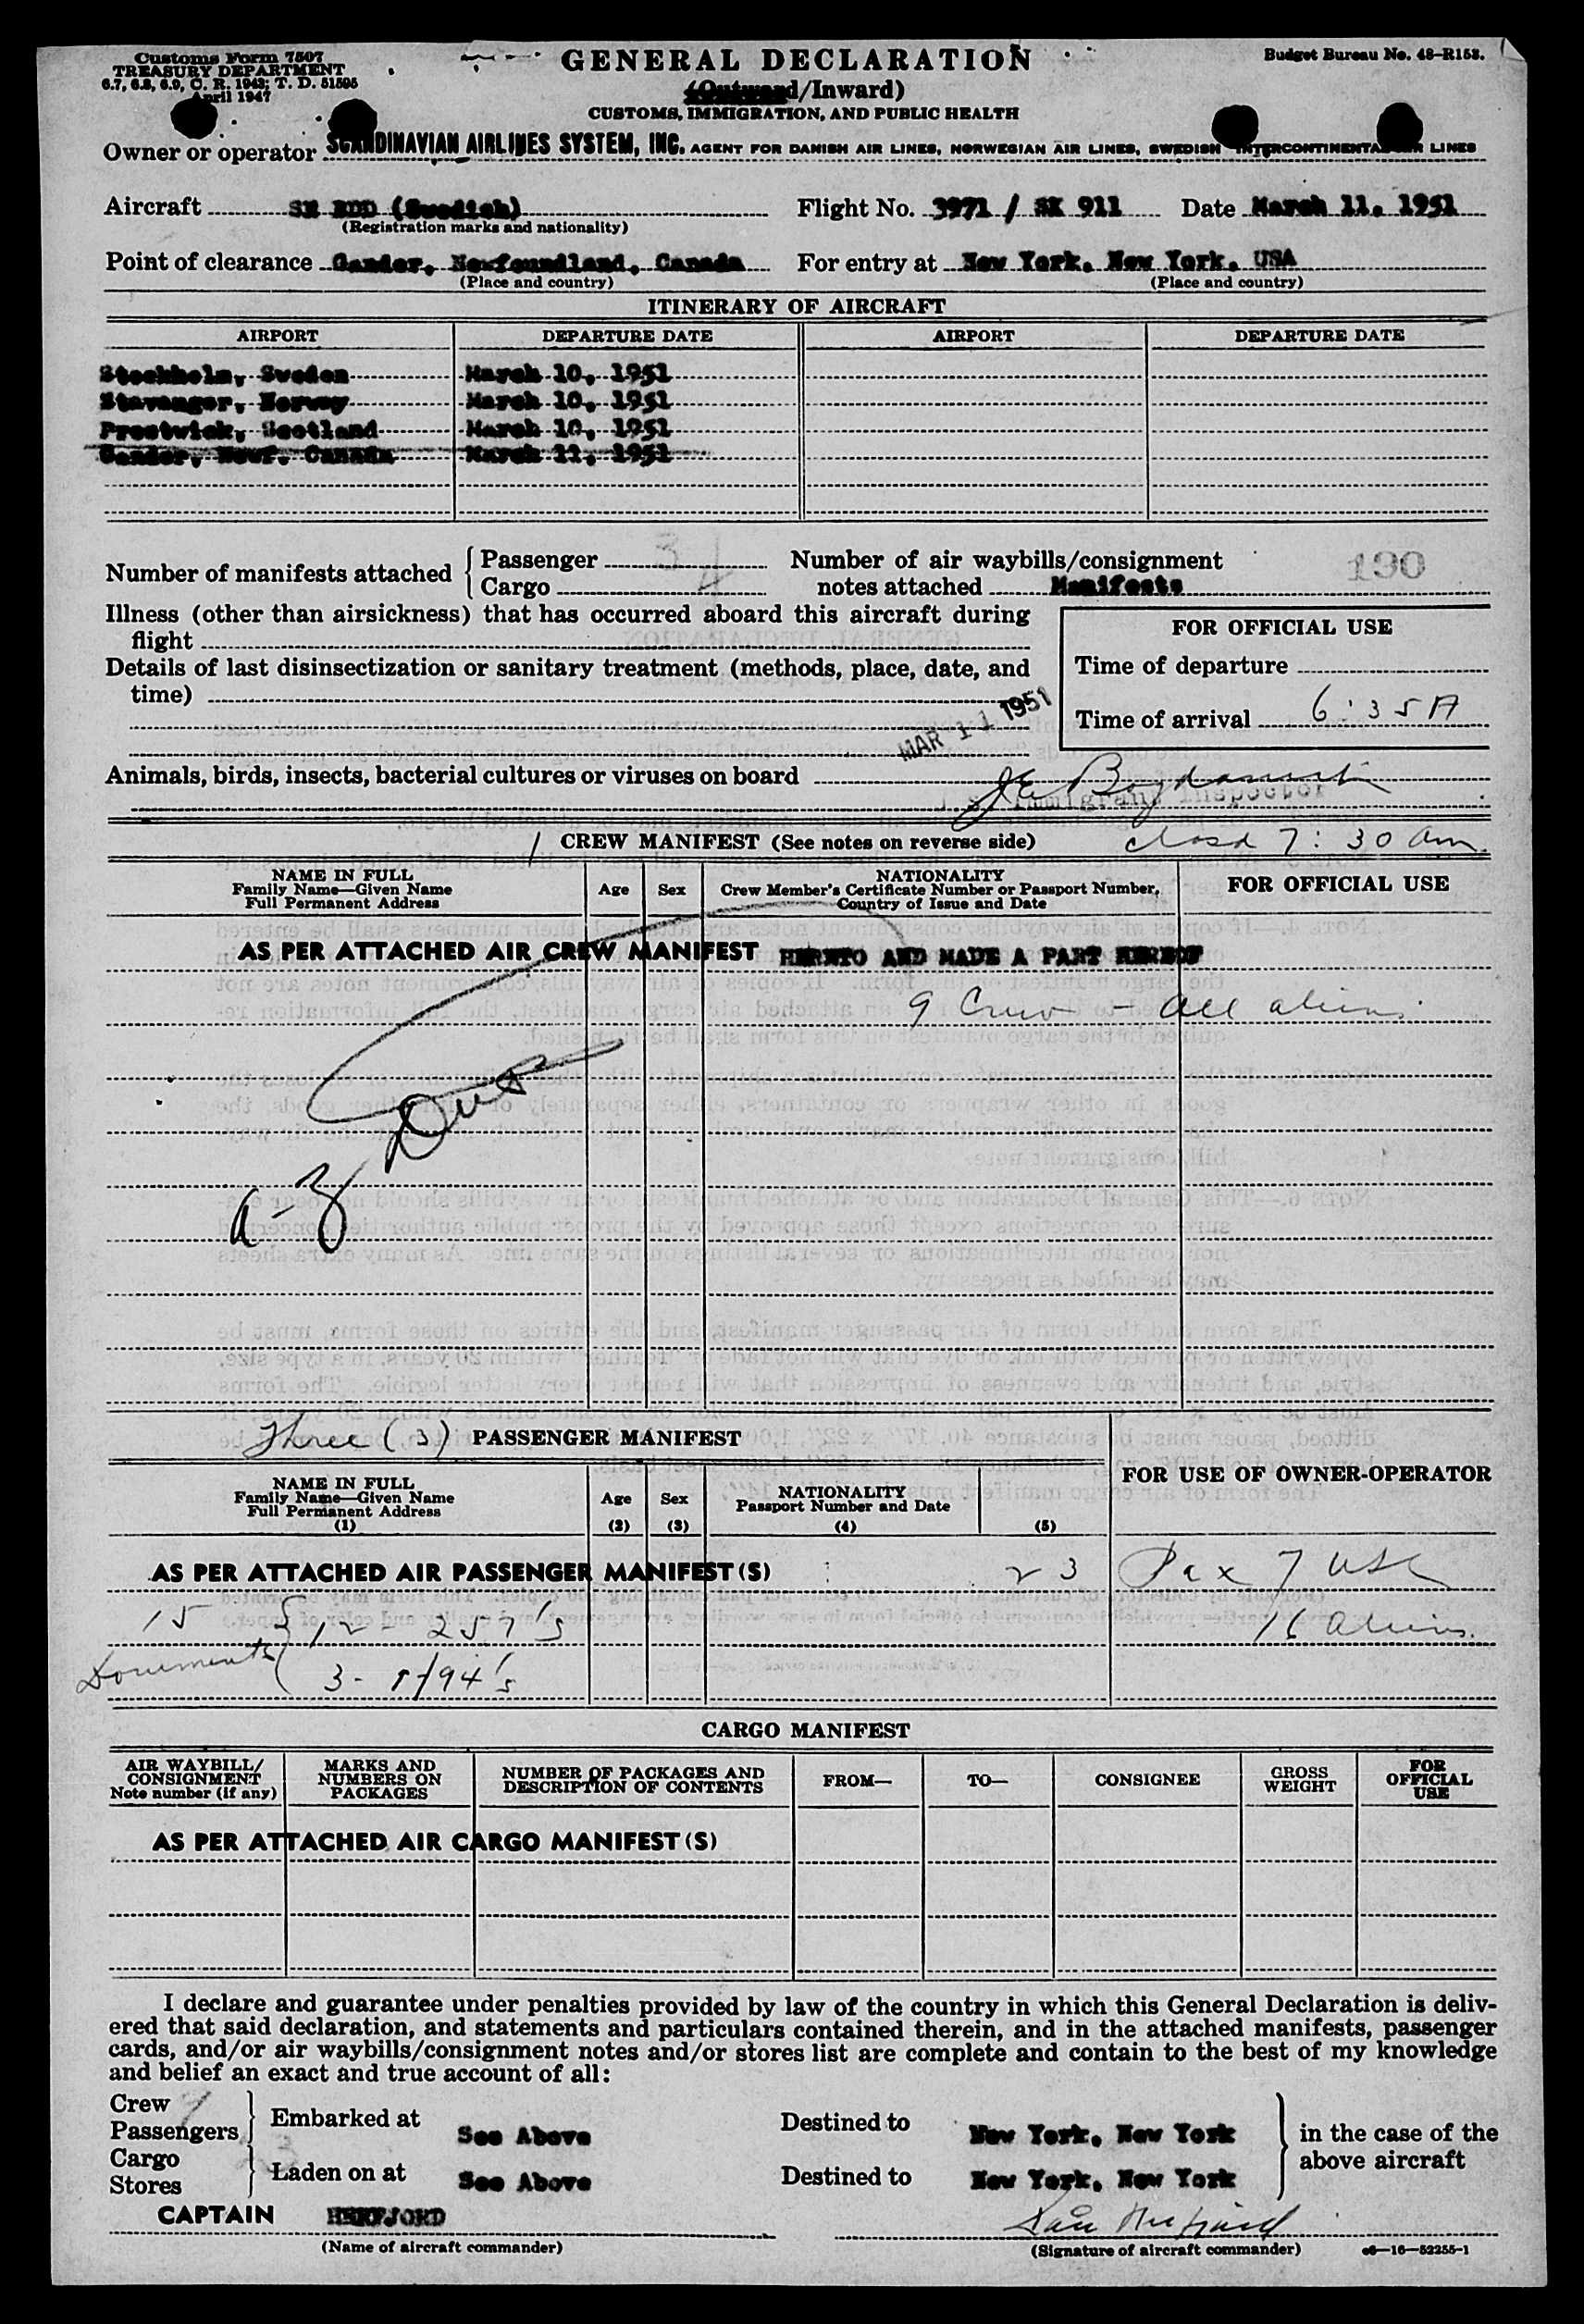 Customs Form 7507
TREASURY DEPARTMENT
6.7, 6.8, 6.9, C. R. 1943; T. D. 51595
April 1947
GENERAL DECLARATION
(Outward/Inward)
CUSTOMS, IMMIGRATION, AND PUBLIC HEALTH
Budget Bureau No. 48-R153.
Owner or operator SCANDINAVIAN AIRLINES SYSTEM, INC. AGENT FOR DANISH AIR LINES, NORWEGIAN AIR LINES, SWEDISH INTERCONTINENTAL AIR LINES
Aircraft SE BDD (Swedish) Flight No. 3971 / SK 911 Date March 11, 1951
(Registration marks and nationality)
Point of clearance Gander, Newfoundland, Canada For entry at New York, New York, USA
(Place and country) (Place and country)
ITINERARY OF AIRCRAFT
AIRPORT DEPARTURE DATE AIRPORT DEPARTURE DATE
Stockholm, Sweden March 10, 1951
Stavanger, Norway March 10, 1951
Prestwick, Scotland March 10, 1951
Gander, Newf. Canada March 11, 1951
Number of manifests attached { Passenger 3 Number of air waybills/consignment 190
Cargo 4 notes attached Manifests
Illness (other than airsickness) that has occurred aboard this aircraft during
flight
FOR OFFICIAL USE
Details of last disinsectization or sanitary treatment (methods, place, date, and
time)
Time of departure
MAR 11 1951
Time of arrival 6:35 A
Animals, birds, insects, bacterial cultures or viruses on board
Immigrant Inspector
1 CREW MANIFEST (See notes on reverse side) closd 7:30 am.
NAME IN FULL
Family Name—Given Name
Full Permanent Address
Age Sex
NATIONALITY
Crew Member's Certificate Number or Passport Number,
Country of Issue and Date
FOR OFFICIAL USE
AS PER ATTACHED AIR CREW MANIFEST HERETO AND MADE A PART HEREOF
9 Crew - all aliens.
a-z
Three (3) PASSENGER MANIFEST
FOR USE OF OWNER-OPERATOR
NAME IN FULL
Family Name—Given Name
Full Permanent Address
(1)
Age
(2)
Sex
(3)
NATIONALITY
Passport Number and Date
(4) (5)
AS PER ATTACHED AIR PASSENGER MANIFEST(S) 23 Pax 7 USC
15 { 12 - 257's 16 aliens.
Documents 3 - I/94's
CARGO MANIFEST
AIR WAYBILL/
CONSIGNMENT
Note number (if any)
MARKS AND
NUMBERS ON
PACKAGES
NUMBER OF PACKAGES AND
DESCRIPTION OF CONTENTS
FROM— TO— CONSIGNEE
GROSS
WEIGHT
FOR
OFFICIAL
USE
AS PER ATTACHED AIR CARGO MANIFEST(S)
I declare and guarantee under penalties provided by law of the country in which this General Declaration is deliv-
ered that said declaration, and statements and particulars contained therein, and in the attached manifests, passenger
cards, and/or air waybills/consignment notes and/or stores list are complete and contain to the best of my knowledge
and belief an exact and true account of all:
Crew 9
Passengers } Embarked at See Above Destined to New York, New York } in the case of the
Cargo above aircraft
Stores } Laden on at See Above Destined to New York, New York
CAPTAIN HERFJORD
(Name of aircraft commander) (Signature of aircraft commander) c6—16—52255-1